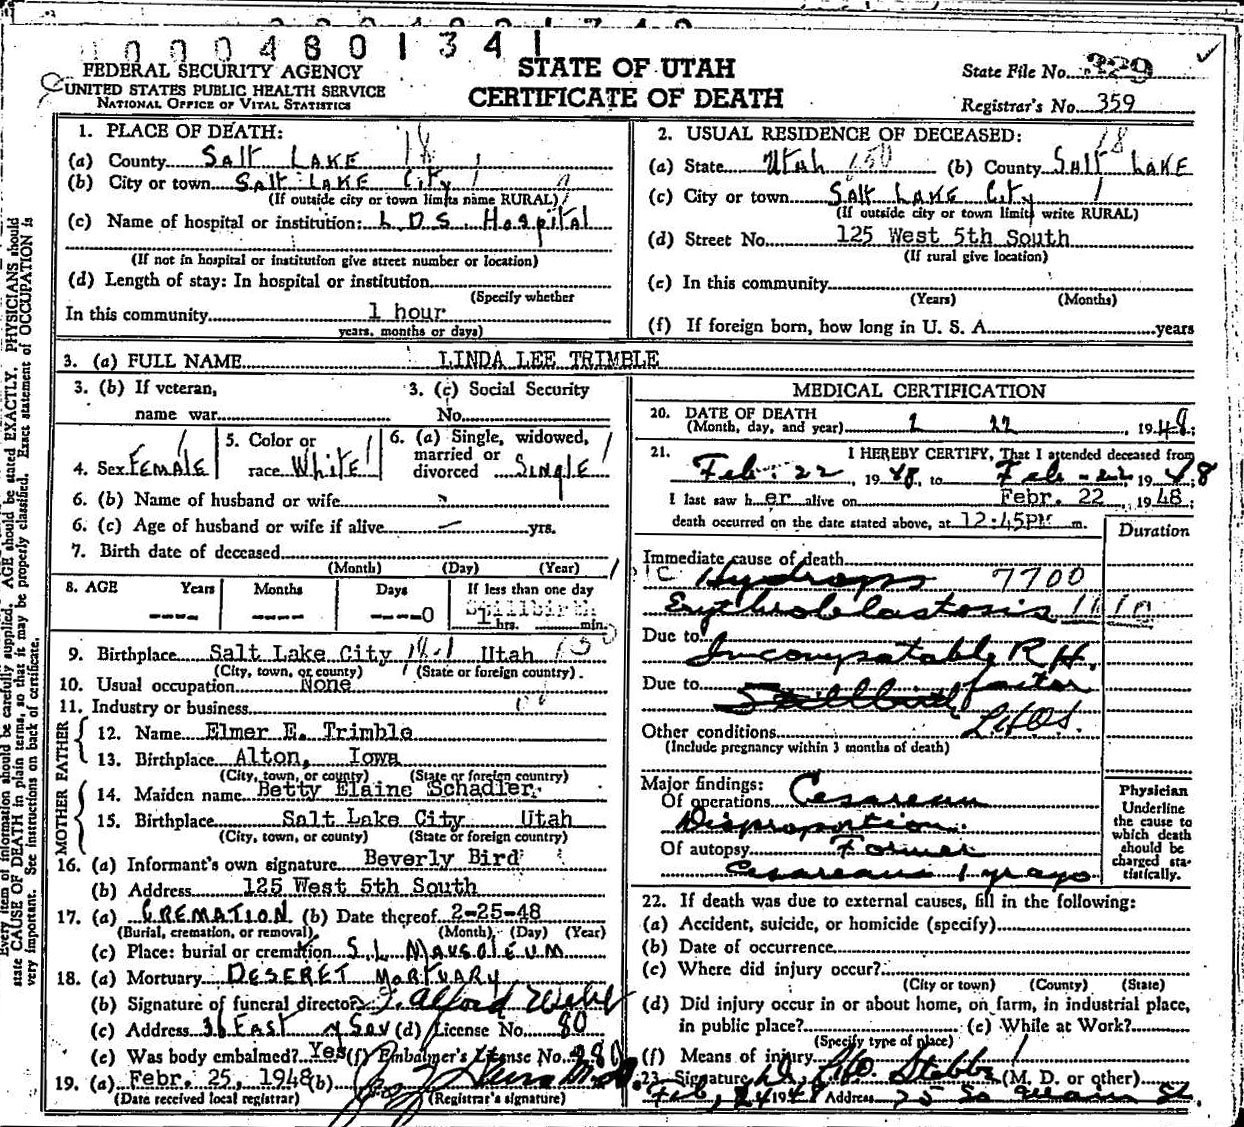 0000 4801341
FEDERAL SECURITY AGENCY
UNITED STATES PUBLIC HEALTH SERVICE
NATIONAL OFFICE OF VITAL STATISTICS
STATE OF UTAH
CERTIFICATE OF DEATH
State File No. 329
Registrar's No. 359
1. PLACE OF DEATH:
(a) County Salt LAKE 18 1
(b) City or town Salt LAKE City 1
(If outside city or town limits name RURAL)
(c) Name of hospital or institution: L.D.S. Hospital
(If not in hospital or institution give street number or location)
(d) Length of stay: In hospital or institution
(Specify whether
In this community 1 hour
years, months or days)
2. USUAL RESIDENCE OF DECEASED: 18
(a) State Utah 150 (b) County Salt LAKE
(c) City or town Salt LAKE City 1
(If outside city or town limit write RURAL)
(d) Street No. 125 West 5th South
(If rural give location)
(e) In this community
(Years) (Months)
(f) If foreign born, how long in U. S. A. years
3. (a) FULL NAME LINDA LEE TRIMBLE
3. (b) If veteran,
name war
3. (c) Social Security
No.
4. Sex Female 1
5. Color or
race White 1
6. (a) Single, widowed,
married or
divorced Single 1
6. (b) Name of husband or wife
6. (c) Age of husband or wife if alive — yrs.
7. Birth date of deceased
(Month) (Day) (Year)
8. AGE Years Months Days If less than one day
---- ---- ----0 1 hrs. min.
Stillbirth
9. Birthplace Salt Lake City 18-1 Utah 150
(City, town, or county) (State or foreign country)
10. Usual occupation None
11. Industry or business
FATHER
12. Name Elmer E. Trimble
13. Birthplace Alton, Iowa
(City, town, or county) (State or foreign country)
MOTHER
14. Maiden name Betty Elaine Schadler
15. Birthplace Salt Lake City Utah
(City, town, or county) (State or foreign country)
16. (a) Informant's own signature Beverly Bird
(b) Address 125 West 5th South
17. (a) CREMATION (b) Date thereof 2-25-48
(Burial, cremation, or removal) (Month) (Day) (Year)
(c) Place: burial or cremation S.L. MAUSOLEUM
18. (a) Mortuary DESERET MORTUARY
(b) Signature of funeral director
(c) Address 36 EAST 7 Sou (d) License No. 80
(e) Was body embalmed? Yes (f) Embalmer's License No. 280
19. (a) Febr. 25, 1948 (b)
(Date received local registrar) (Registrar's signature)
MEDICAL CERTIFICATION
20. DATE OF DEATH
(Month, day, and year) 2 22, 1948;
21. I HEREBY CERTIFY, That I attended deceased from
Feb. 22, 1948, to Feb - 22, 1948;
I last saw her alive on Febr. 22, 1948;
death occurred on the date stated above, at 12:45PM m.
Duration
Immediate cause of death
Hydrops 7700
Erythroblastosis
Due to
Incompatable R.H.
Due to Stillbirth factor
Other conditions
(Include pregnancy within 3 months of death)
Major findings:
Of operations Cesarean
Disproportion.
Of autopsy Former
Cesarean 1 yr ago
Physician
Underline
the cause to
which death
should be
charged sta-
tistically.
22. If death was due to external causes, fill in the following:
(a) Accident, suicide, or homicide (specify)
(b) Date of occurrence
(c) Where did injury occur?
(City or town) (County) (State)
(d) Did injury occur in or about home, on farm, in industrial place,
in public place? (e) While at Work?
(Specify type of place)
(f) Means of injury
23. Signature (M. D. or other)
Feb, 24 1948 Address 75 So Main St.
Every item of information should be carefully supplied. AGE should be stated EXACTLY. PHYSICIANS should
state CAUSE OF DEATH in plain terms, so that it may be properly classified. Exact statement of OCCUPATION is
very important. See instructions on back of certificate.